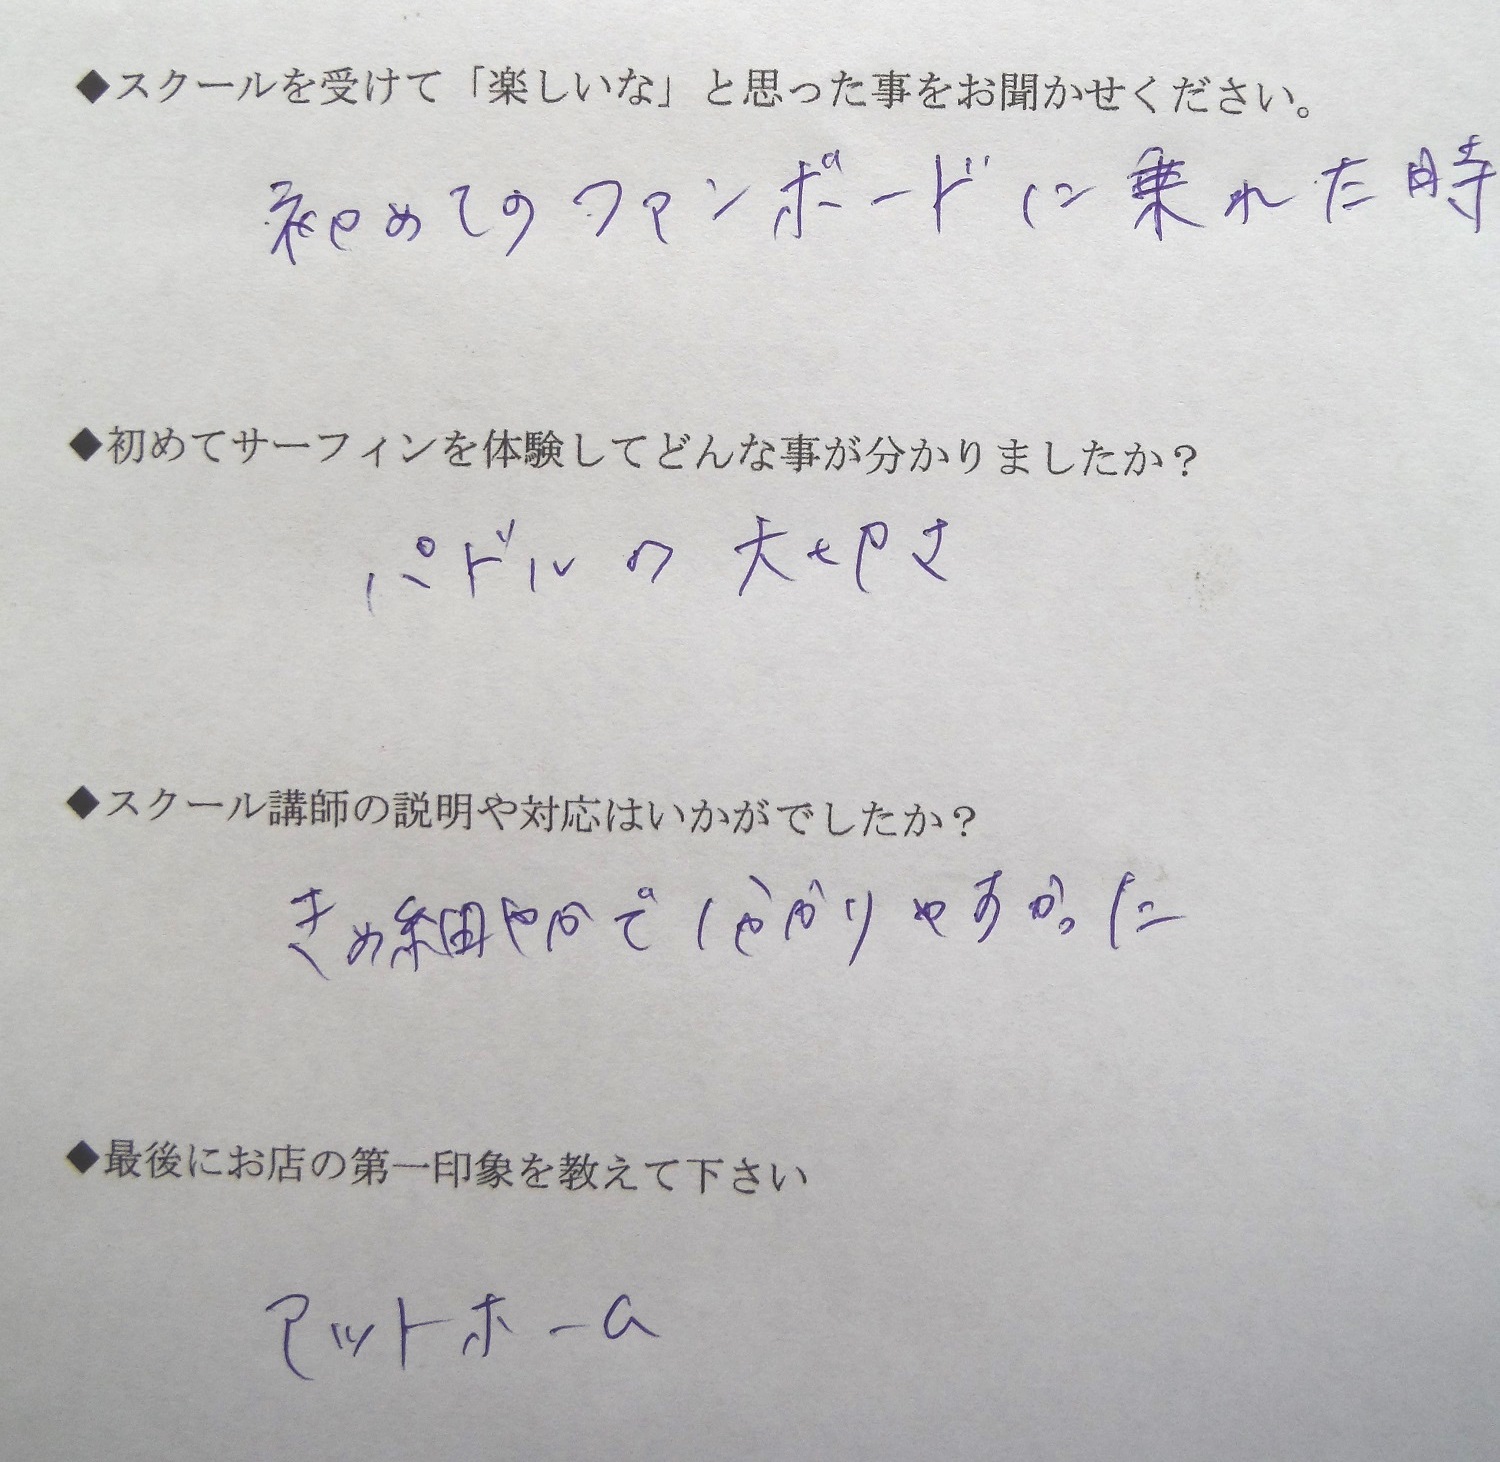 ◆スクールを受けて「楽しいな」と思った事をお聞かせください。
初めてのファンボードに乗れた時
◆初めてサーフィンを体験してどんな事が分かりましたか？
パドルの大切さ
◆スクール講師の説明や対応はいかがでしたか？
きめ細やかでわかりやすかった
◆最後にお店の第一印象を教えて下さい
アットホーム